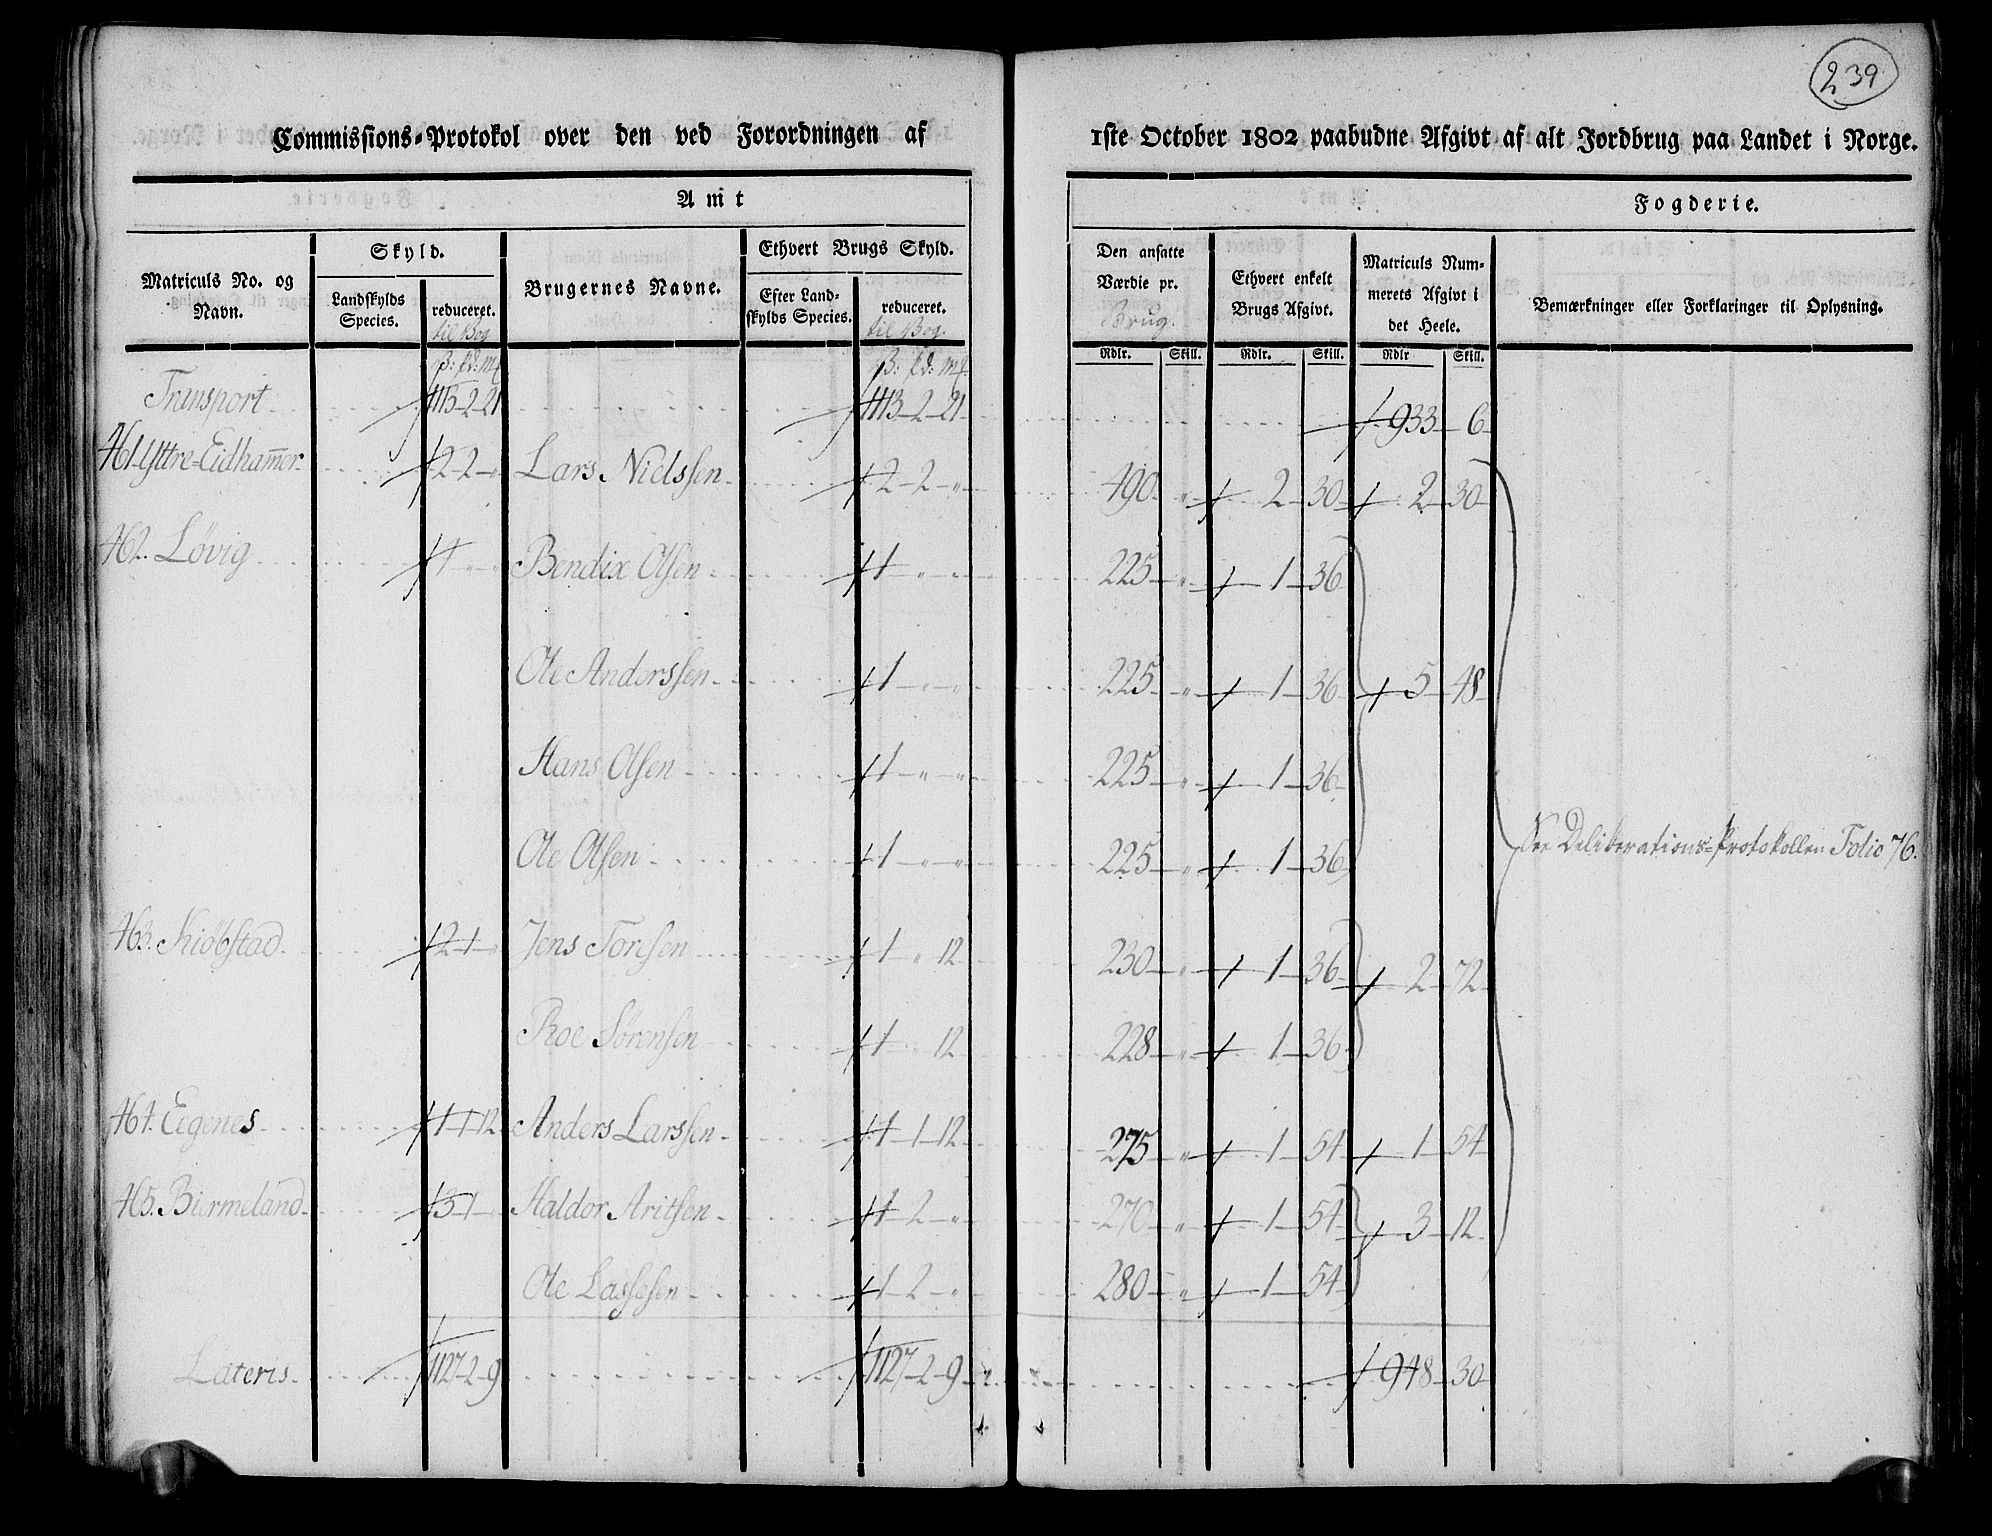 239
Commissions-Protokol over den ved Forordningen af 1ste October 1802 paabudne Afgivt af alt Jordbrug paa Landet i Norge.
Amt Fogderie.
Matriculs No. og Navn. Skyld. Landskylds Species. reduceret. til Bog Brugernes Navne. Ethvert Brugs Skyld. Efter Landskylds Species. reduceret. til Bog. Den ansatte Værdie pr. Brug. Ethvert enkelt Brugs Afgivt. Matriculs Nummerets Afgivt i det Heele. Bemærkninger eller Forklaringer til Oplysning.
Rdlr. Skill. Rdlr. Skill. Rdlr Skill.
Transport 1113-2-21 1113-2-21 933-6
461. Yttre-Eidhammer 2-2-" Lars Nielssen 2-2-" 490-" 2-30 2-30
462. Løvig 4-"-" Bendix Olsen 1-"-" 225-" 1-36
Ole Anderssen 1-"-" 225-" 1-36 5-48
Hans Olsen 1-"-" 225-" 1-36
Ole Olsen 1-"-" 225-" 1-36
See Deliberations-Protokollen Folio 76.
463. Kiøbstad 2-1-" Jens Toresen 1-"-12 230-" 1-36 2-72
Roe Sørensen 1-"-12 228-" 1-36
464. Eegenes 1-1-12 Anders Larssen 1-1-12 275-" 1-54 1-54
465. Biermeland 3-1-" Haldor Aritsen 1-2-" 270-" 1-54 3-12
Ole Lassesen 1-2-" 280-" 1-54
Lateris 1127-2-9 1127-2-9 948-30